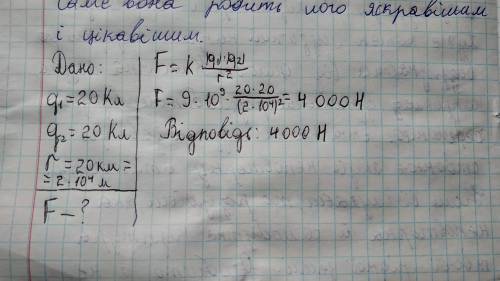 саме вона робить його яскравішим
і цікавішим.
Дано:
q₁ = 20 Кл
q₂ = 20 Кл
r = 20 км =
= 2 · 10⁴ м
F – ?
F = k |q₁|·|q₂| / r²
F = 9 · 10⁹ · 20 · 20 / (2 · 10⁴)² = 4 000 Н
Відповідь: 4000 Н